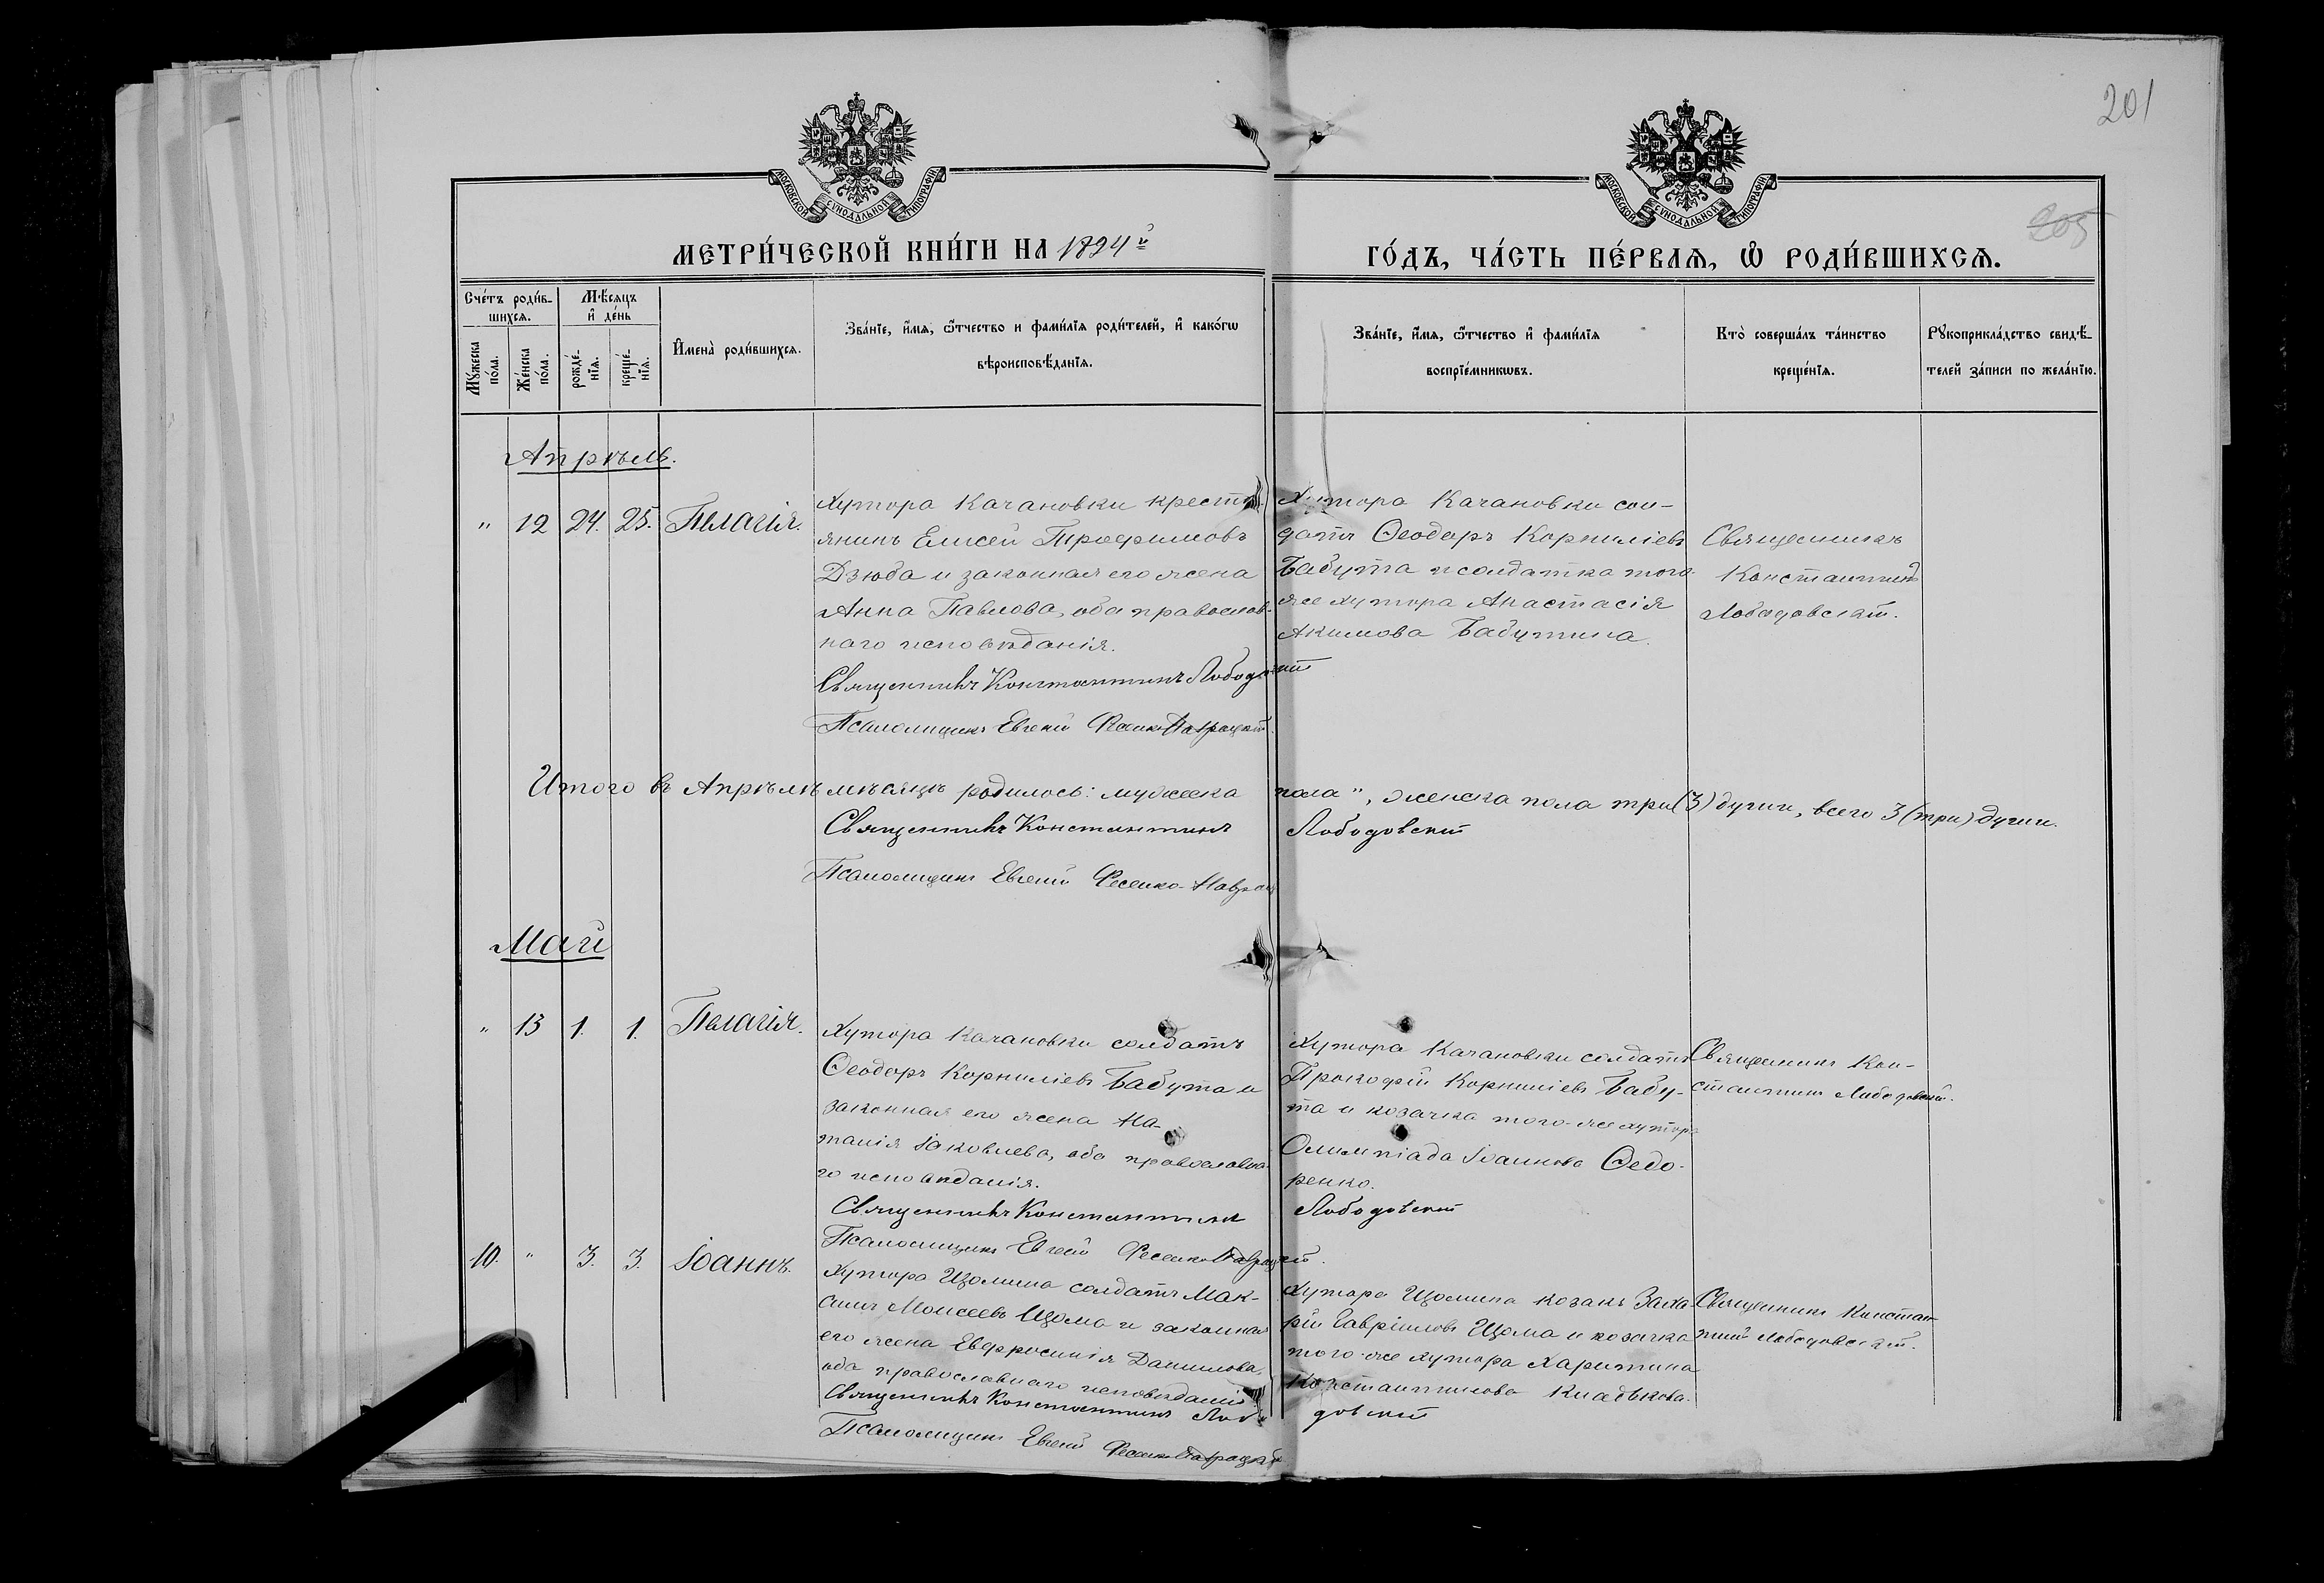 201
205
МОСКОВСКОЙ СѴНОДАЛЬНОЙ ТИПОГРАФІИ
МОСКОВСКОЙ СѴНОДАЛЬНОЙ ТИПОГРАФІИ
МЕТРИ́ЧЕСКОЙ КНИ́ГИ НА 1894й
ГО́ДЪ, ЧА́СТЬ ПЕ́РВАѦ, Ѡ҆ РОДИ́ВШИХСѦ.
Сче́тъ роди́в-
шихсѧ.
Мѣ́сѧцъ
и҆ де́нь
Мꙋ́жеска
по́ла.
Же́нска
по́ла.
рожде́-
нїѧ.
креще́-
нїѧ.
И҆мена̀ роди́вшихсѧ.
Зва́нїе, и҆́мѧ, ѻ҆́тчество и фами́лїѧ роди́телей, и҆ како́гѡ
вѣроисповѣ́данїѧ.
Зва́нїе, и҆́мѧ, ѻ҆́тчество и҆ фами́лїѧ
воспрїе́мникѡвъ.
Кто̀ соверша́лъ та́инство
креще́нїѧ.
Рꙋкоприкла́дство свидѣ́-
телей за́писи по жела́нїю.
Апрѣль.
" 12 24. 25. Пелагія.
Хутора Качановки кресть-
янинъ Елисей Трофимовъ
Дзюба и законная его жена
Анна Павлова, оба православ-
наго исповѣданія.
Священникъ Константинъ Лободовскій
Псаломщикъ Евгеній Фесенко-Навроцкій.
Хутора Качановки сол-
датъ Ѳеодоръ Корниліевъ
Бабута и солдатка того-
же хутора Анастасія
Акимова Бабутина.
Священникъ
Константинъ
Лободовскій.
Итого въ Апрѣлѣ мѣсяцѣ родилось: мужеска пола ", женска пола три (3) души, всего 3 (три) души.
Священникъ Константинъ Лободовскій
Псаломщикъ Евгеній Фесенко-Навроц
Май
" 13 1. 1. Пелагія.
Хутора Качановки солдатъ
Ѳеодоръ Корниліевъ Бабута и
законная его жена На-
талія Іаковлева, оба православна-
го исповѣданія.
Священникъ Константинъ Лободовскій
Псаломщикъ Евгеній Фесенко-Навроцкій.
Хутора Качановки солдатъ
Прокофій Корниліевъ Бабу-
та и козачка того-же хутора
Олимпіада Іоаннова Ѳедо-
ренко.
Священникъ Кон-
стантинъ Лободовскій.
10. " 3. 3. Іоаннъ.
Хутора Цломина солдатъ Мак-
симъ Моисеевъ Цлома и законная
его жена Евфросинія Даниилова,
оба православнаго исповѣданія
Священникъ Константинъ Лободовскій
Псаломщикъ Евгеній Фесенко-Навроцкій
козакъ Заха-
рій Гавріиловъ и козачка
того-же хутора Харитина
Константинова
Священникъ Констан-
тинъ Лободовскій.